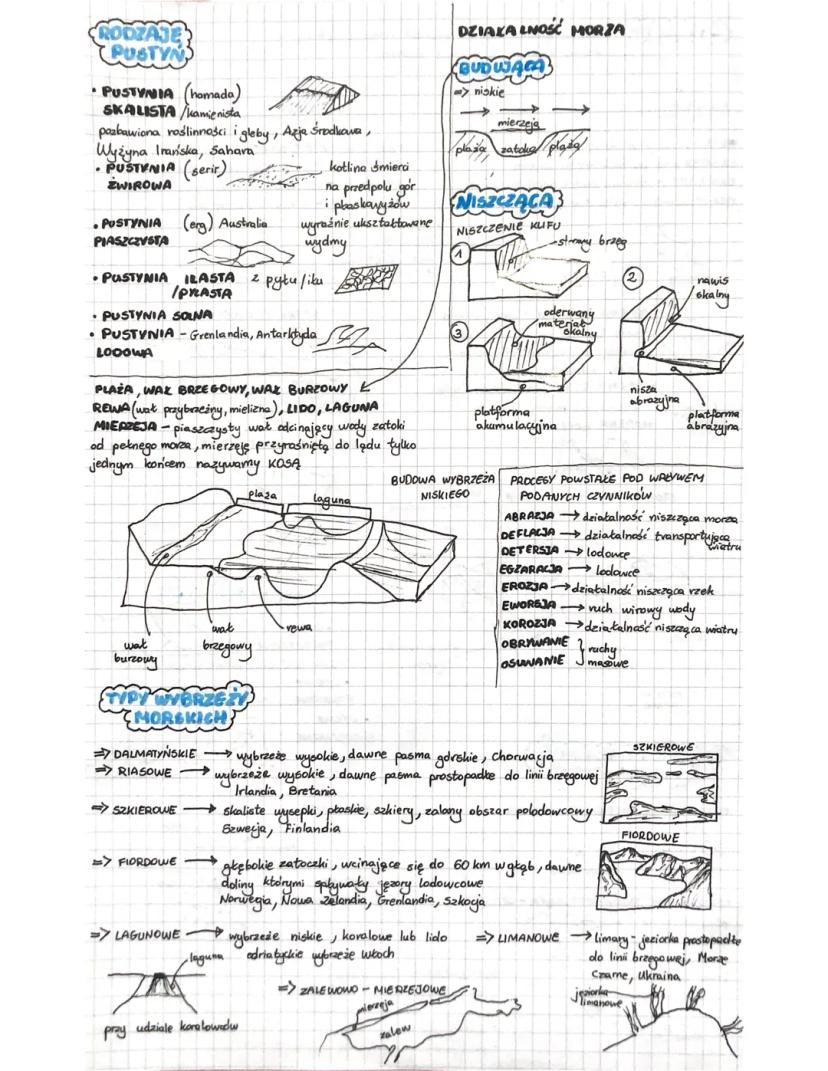 RODZAJE
PUSTYŃ
• PUSTYNIA (hamada)
SKALISTA /kamienista
pozbawiona roślinności i gleby, Azja Środkowa,
Wyżyna Irańska, Sahara
• PUSTYNIA (serir)
ŻWIROWA
kotlina śmierci
na przedpolu gór
i płaskowyżów
• PUSTYNIA (erg) Australia
PIASZCZYSTA
wyraźnie ukształtowane
wydmy
• PUSTYNIA ILASTA z pyłu/iłu
/PYLASTA
• PUSTYNIA SOLNA
• PUSTYNIA – Grenlandia, Antarktyda
LODOWA
DZIAŁALNOŚĆ MORZA
BUDUJĄCA
=> niskie
mierzeja
plaża zatoka plaża
NISZCZĄCA
NISZCZENIE KLIFU
1
stromy brzeg
2
nawis
skalny
nisza
abrazyjna
platforma
abrazyjna
3
oderwany
materiał
skalny
platforma
akumulacyjna
PLAŻA, WAŁ BRZEGOWY, WAŁ BURZOWY
REWA (wał przybrzeżny, mielizna), LIDO, LAGUNA
MIERZEJA – piaszczysty wał odcinający wody zatoki
od pełnego morza, mierzeję przyrośniętą do lądu tylko
jednym końcem nazywamy KOSĄ
BUDOWA WYBRZEŻA
NISKIEGO
plaża
laguna
wał
burzowy
wał
brzegowy
rewa
PROCESY POWSTAŁE POD WPŁYWEM
PODANYCH CZYNNIKÓW
ABRAZJA → działalność niszcząca morza
DEFLACJA → działalność transportująca
wiatru
DETERSJA → lodowce
EGZARACJA → lodowce
EROZJA → działalność niszcząca rzek
EWORSJA → ruch wirowy wody
KOROZJA → działalność niszcząca wiatru
OBRYWANIE } ruchy
OSUWANIE masowe
TYPY WYBRZEŻY
MORSKICH
=> DALMATYŃSKIE → wybrzeże wysokie, dawne pasma górskie, Chorwacja
=> RIASOWE → wybrzeże wysokie, dawne pasma prostopadłe do linii brzegowej
Irlandia, Bretania
=> SZKIEROWE → skaliste wysepki, płaskie, szkiery, zalany obszar polodowcowy
Szwecja, Finlandia
SZKIEROWE
=> FIORDOWE → głębokie zatoczki, wcinające się do 60 km w głąb, dawne
doliny którymi spływały jęzory lodowcowe
Norwegia, Nowa Zelandia, Grenlandia, Szkocja
FIORDOWE
=> LAGUNOWE → wybrzeże niskie, koralowe lub lido
adriatyckie wybrzeże Włoch
laguna
przy udziale koralowców
=> LIMANOWE → limany – jeziorka prostopadłe
do linii brzegowej, Morze
Czarne, Ukraina
jeziorka
limanowe
=> ZALEWOWO – MIERZEJOWE
mierzeja
zalew